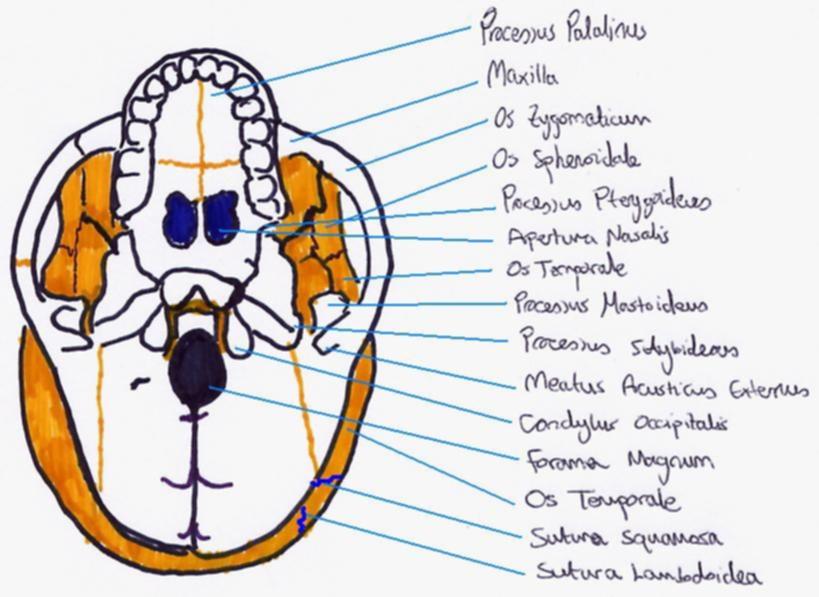 Processus Palalinus
Maxilla
Os Zygomaticum
Os Sphenoidale
Processus Pterygoideus
Apertura Nasalis
Os Temporale
Processus Mastoideus
Processus Stlybideous
Meatus Acusticus Externus
Condylus Occipitalis
Forama Magnum
Os Temporale
Sutura Squamosa
Sutura Lambdoidea